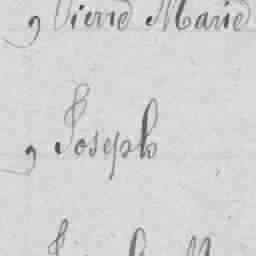 9 Pierre Marie
9 Joseph